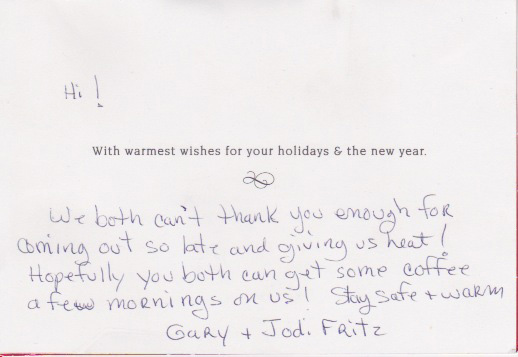 Hi!
With warmest wishes for your holidays & the new year.
We both can't thank you enough for
coming out so late and giving us heat!
Hopefully you both can get some coffee
a few mornings on us! Stay safe + warm
Gary + Jodi Fritz